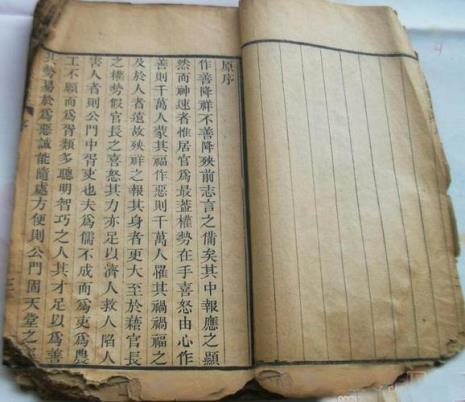 原序
作善降祥不善降殃前志言之備矣其中報應之顯
然而神速者惟居官爲最蓋權勢在手喜怒由心作
善則千萬人蒙其福作惡則千萬人罹其禍禍福之
及於人者遠故殃祥之報其身者更大至於藉官長
之權勢假官長之喜怒其力亦足以濟人救人陷人
害人者則公門中胥吏也夫爲儒不成而爲吏爲農
工不願而爲胥類多聰明智巧之人其才足以爲善
其勢易於爲惡誠能隨處方便則公門固天堂之